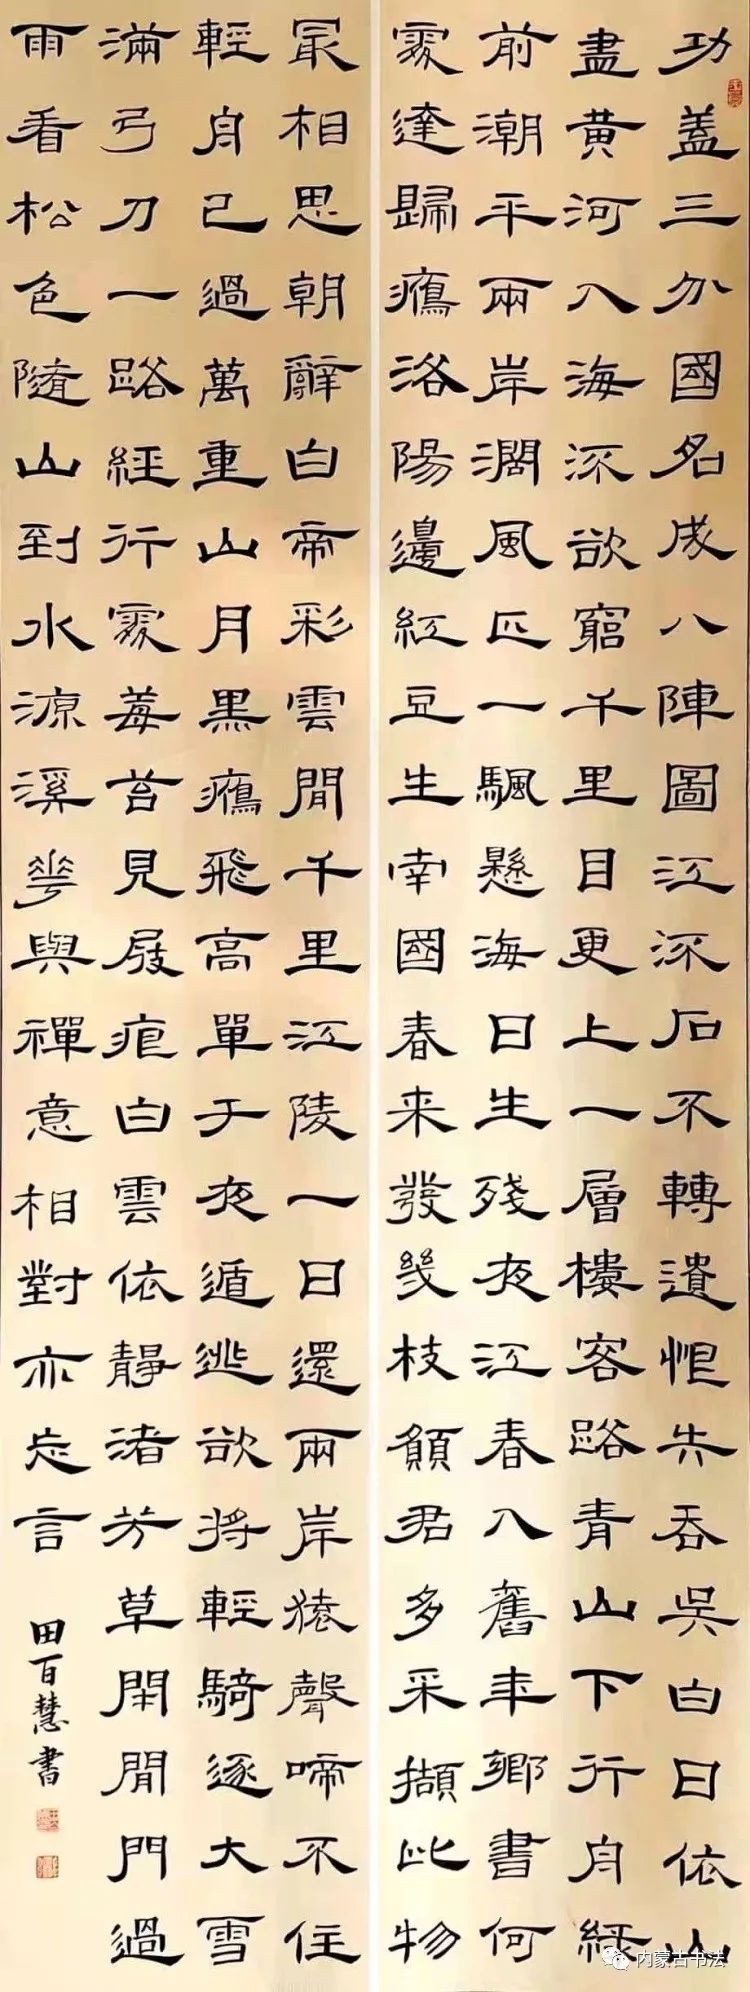 功盖三分國名成八陣圖江流石不轉遺恨失吞吳白日依山
盡黃河入海流欲窮千里目更上一層樓客路青山下行舟綠
前潮平兩岸濶風正一颿懸海日生殘夜江春入舊年鄉書何
處達歸鴈洛陽邊紅豆生南國春来發幾枝願君多采擷此物
最相思朝辭白帝彩雲間千里江陵一日還兩岸猿聲啼不住
輕舟已過萬重山月黑鴈飛高單于夜遁逃欲將輕騎逐大雪
滿弓刀一路經行處莓苔見屐痕白雲依靜渚芳草閉閒門過
雨看松色隨山到水源溪花與禪意相對亦忘言
田百慧書
内蒙古书法